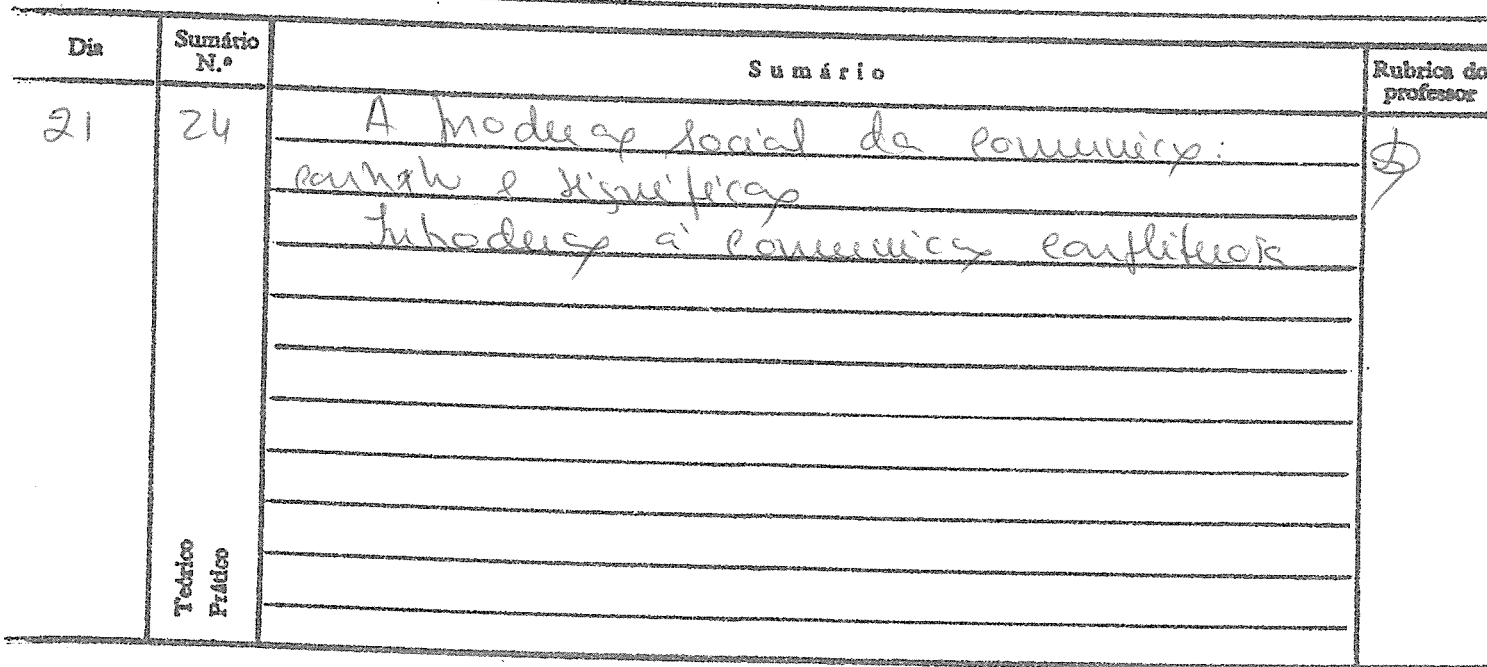 Dia Sumário N.º Sumário Rubrica do professor
21 24 A produção social da comunicação:
e significação
Introdução à comunicação conflitual
Teórico
Prático